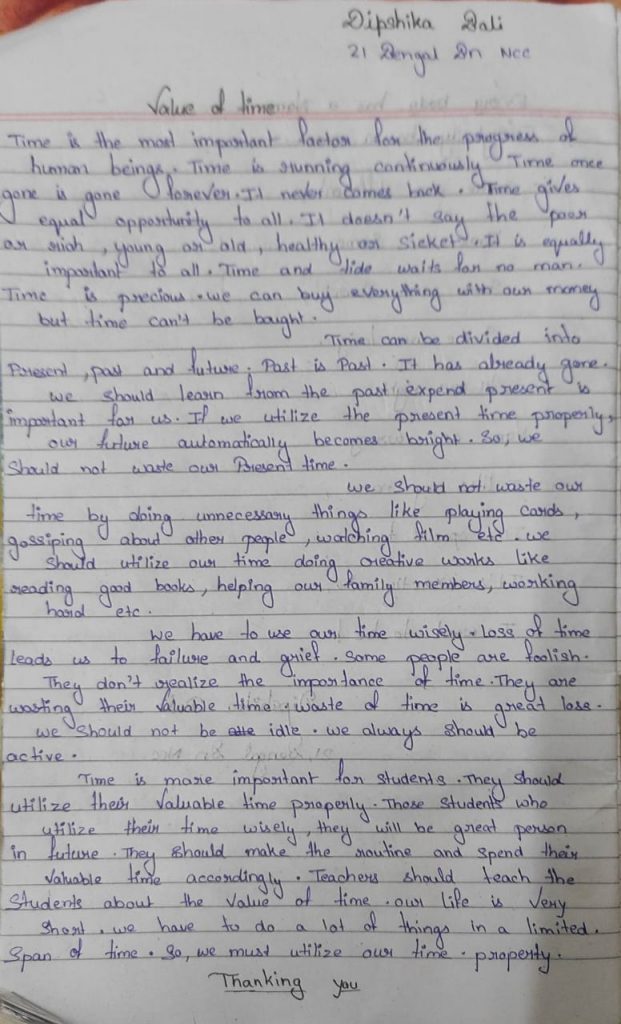 Dipshika Dali
21 Bengal Bn NCC
Value of time
Time is the most important factor for the progress of
human beings. Time is running continuously Time once
gone is gone forever. It never comes back. Time gives
equal opportunity to all. It doesn't say the poor
or rich, young or old, healthy or sicker. It is equally
important to all. Time and tide waits for no man.
Time is precious. we can buy everything with our money
but time can't be bought.
Time can be divided into
Present, past and future. Past is Past. It has already gone.
we should learn from the past expend present is
important for us. If we utilize the present time properly,
our future automatically becomes bright. So, we
Should not waste our Present time.
we should not waste our
time by doing unnecessary things like playing cards,
gossiping about other people, watching film etc. we
should utilize our time doing creative works like
reading good books, helping our family members, working
hard etc.
we have to use our time wisely. Loss of time
leads us to failure and grief. Some people are foolish.
They don't realize the importance of time. They are
wasting their valuable time. waste of time is great lose.
we should not be idle. we always should be
active.
Time is more important for students. They should
utilize their valuable time properly. Those students who
utilize their time wisely, they will be great person
in future. They should make the routine and spend their
valuable time accordingly. Teachers should teach the
Students about the value of time. our life is very
short. we have to do a lot of things in a limited.
Span of time. So, we must utilize our time. property.
Thanking you